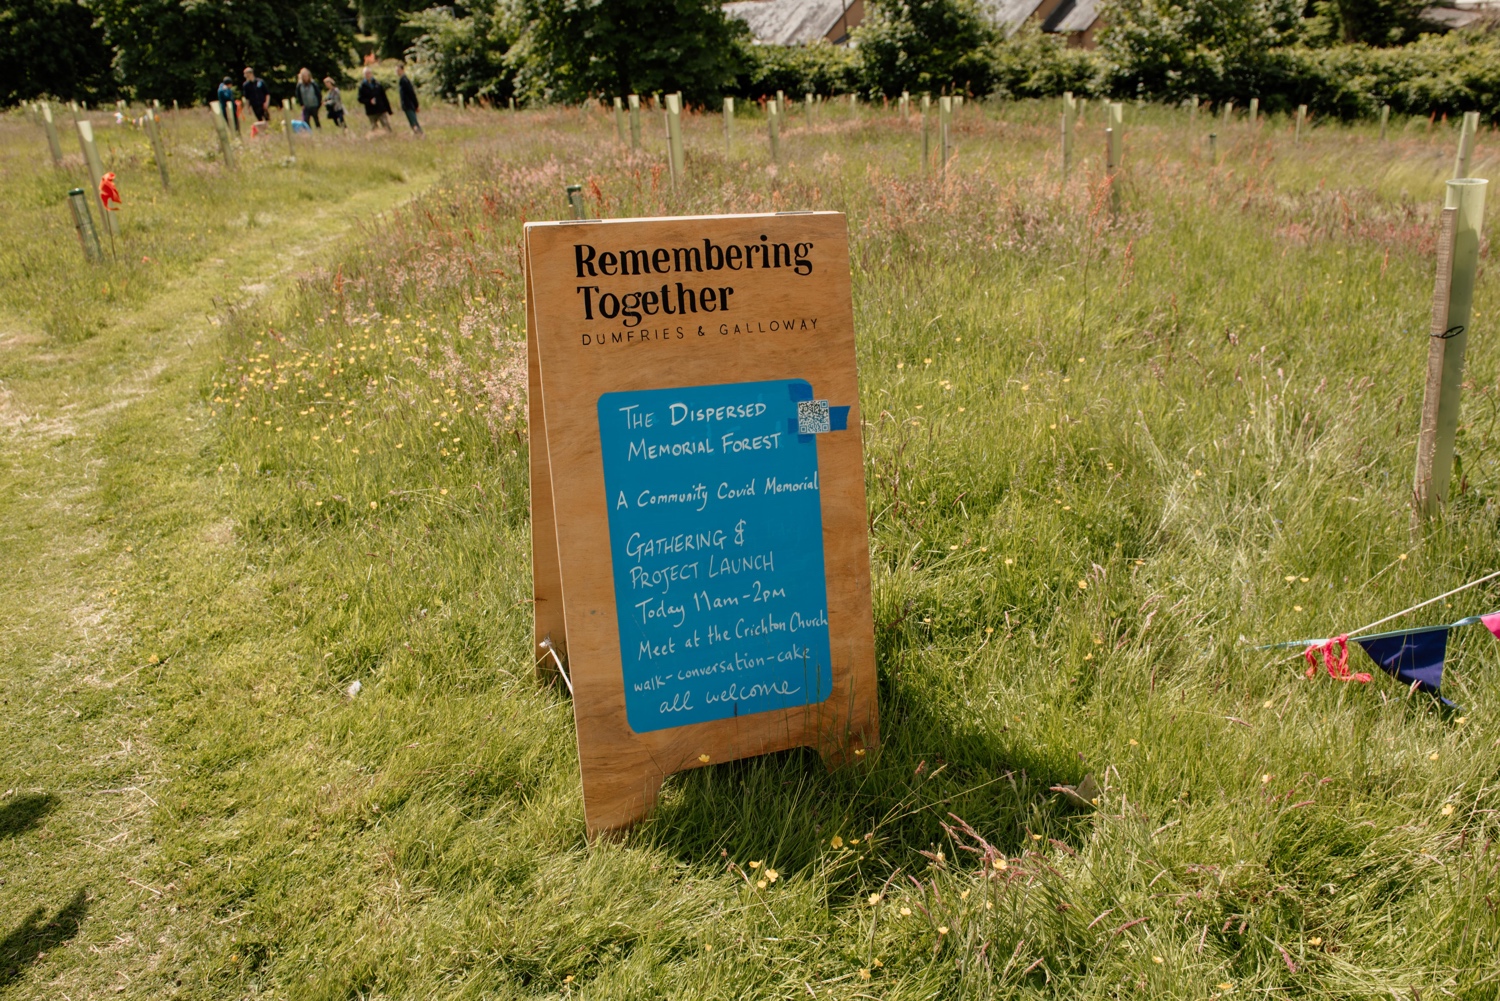 Remembering
Together
DUMFRIES & GALLOWAY
THE DISPERSED
MEMORIAL FOREST
A Community Covid Memorial
GATHERING &
PROJECT LAUNCH
Today 11am-2pm
Meet at the Crichton Church
walk-conversation-cake
all welcome